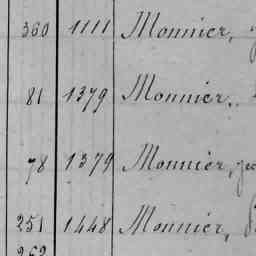 360 1111 Monnier,
81 1379 Monnier,
78 1379 Monnier,
251 1448 Monnier,